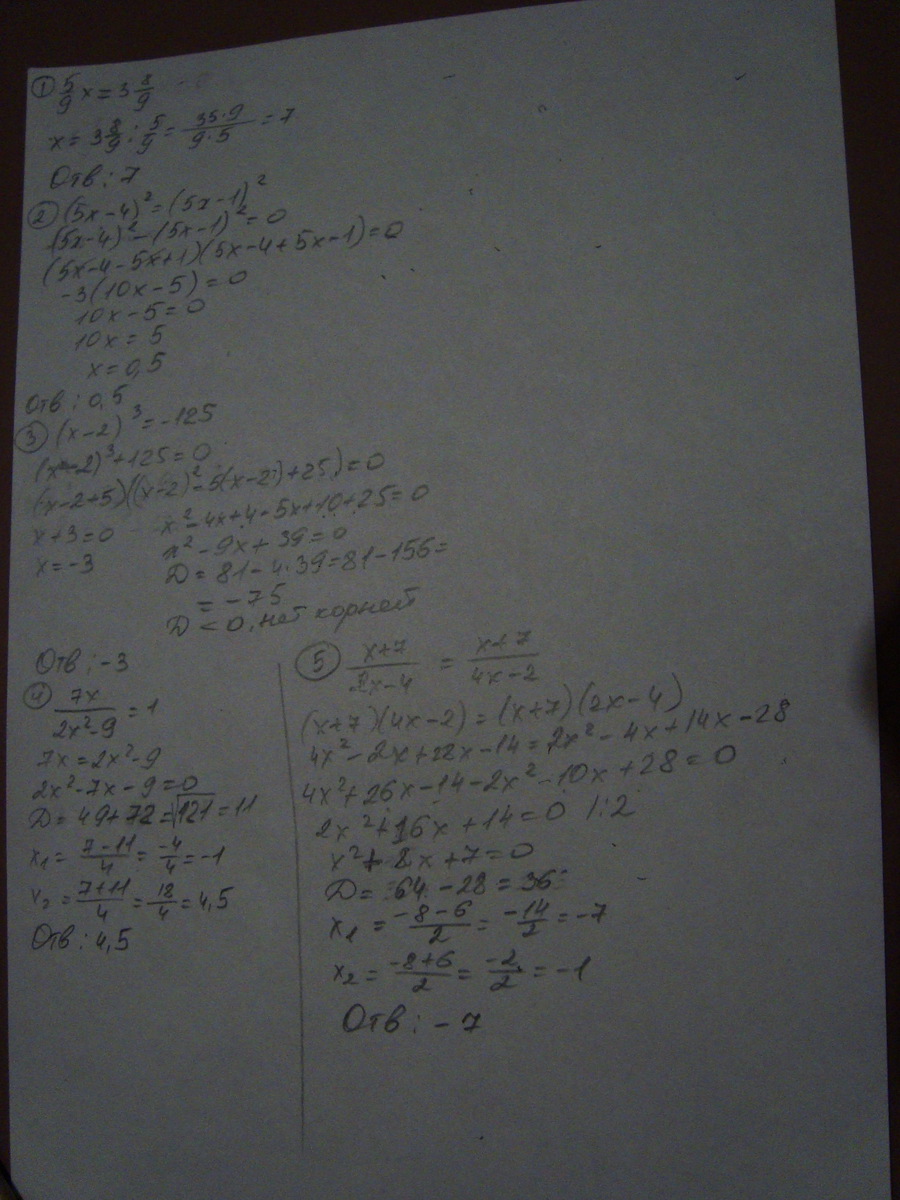 ① 5/9 x = 3 8/9
x = 3 8/9 : 5/9 = 35·9/9·5 = 7
Отв: 7
② (5x-4)² = (5x-1)²
(5x-4)² - (5x-1)² = 0
(5x-4-5x+1)(5x-4+5x-1) = 0
-3(10x-5) = 0
10x-5 = 0
10x = 5
x = 0,5
Отв: 0,5
③ (x-2)³ = -125
(x-2)³+125 = 0
(x-2+5)((x-2)²-5(x-2)+25) = 0
x+3=0 x²-4x+4-5x+10+25=0
x=-3 x²-9x+39=0
D = 81-4·39=81-156=
= -75
D < 0, нет корней
Отв: -3
④ 7x/2x²-9 = 1
7x = 2x²-9
2x²-7x-9=0
D = 49+72=√121=11
x₁ = 7-11/4 = -4/4 = -1
x₂ = 7+11/4 = 18/4 = 4,5
Отв: 4,5
⑤ x+7/2x-4 = x+7/4x-2
(x+7)(4x-2) = (x+7)(2x-4)
4x²-2x+28x-14=2x²-4x+14x-28
4x²+26x-14-2x²-10x+28=0
2x²+16x+14=0 |:2
x²+8x+7=0
D = 64-28=36
x₁ = -8-6/2 = -14/2 = -7
x₂ = -8+6/2 = -2/2 = -1
Отв: -7